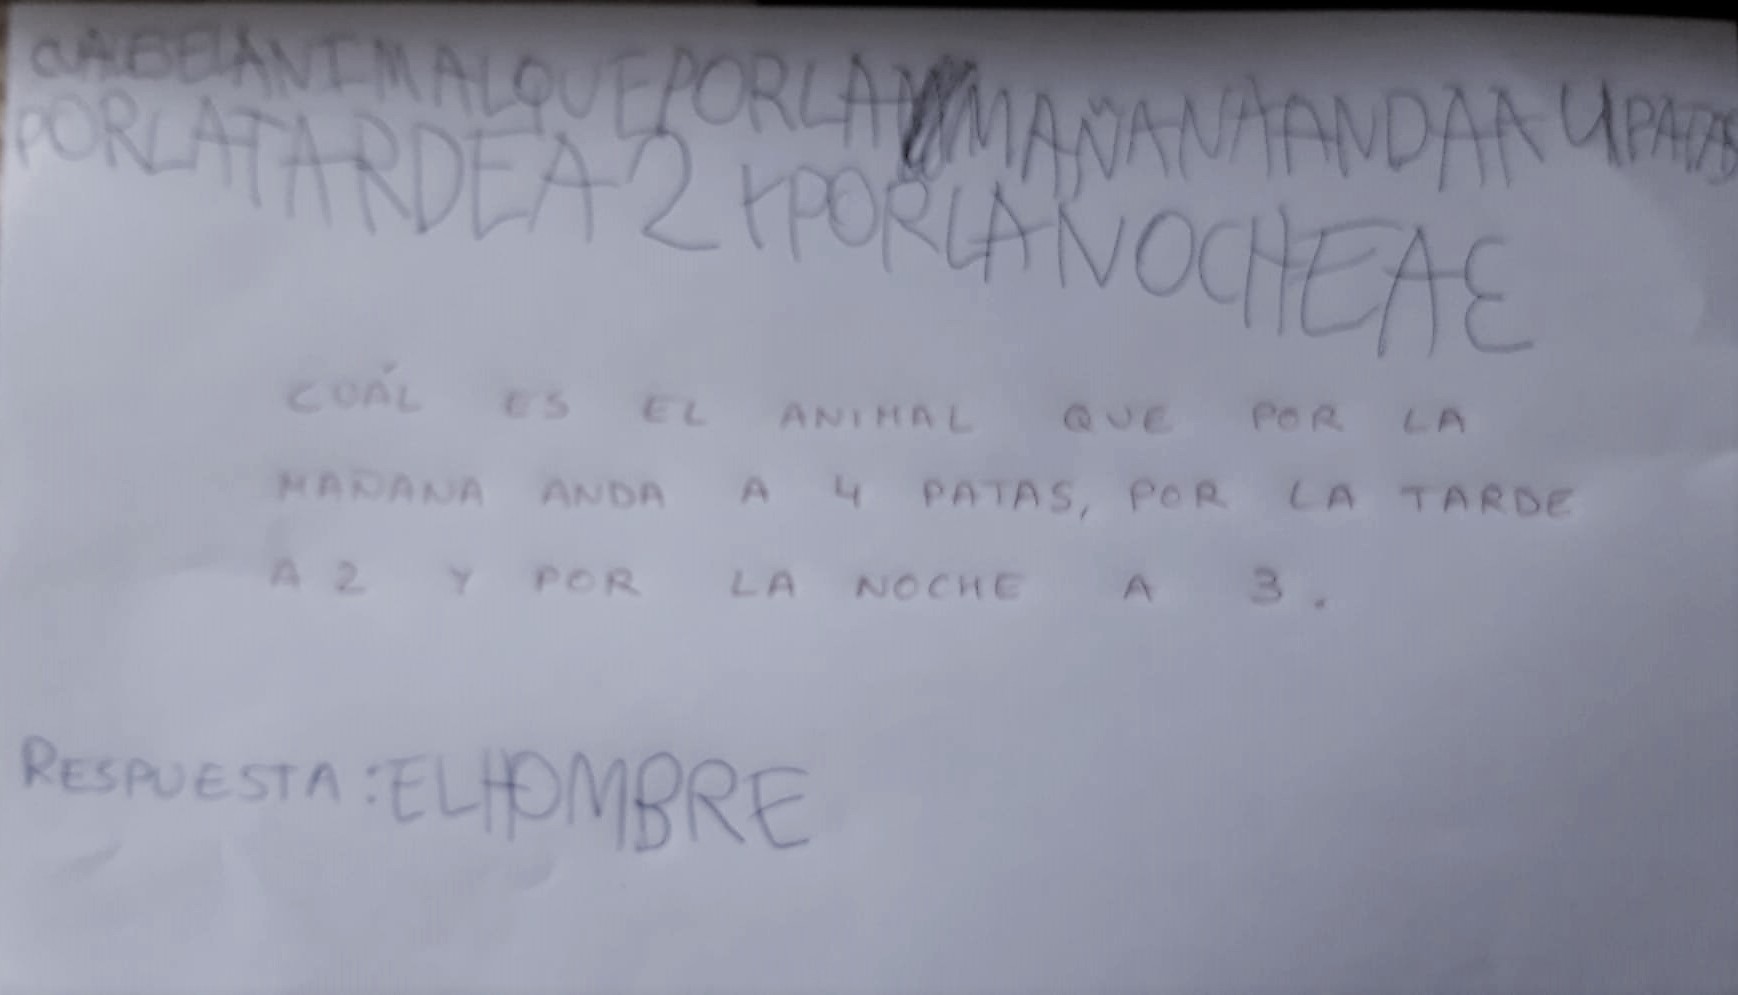 ELANIMALQUEPORLA MAÑANAANDAA 4PATAS
PORLATARDEA 2 YPORLANOCHEA Ɛ
CUÁL ES EL ANIMAL QUE POR LA
MAÑANA ANDA A 4 PATAS, POR LA TARDE
A 2 Y POR LA NOCHE A 3.
RESPUESTA: ELHOMBRE